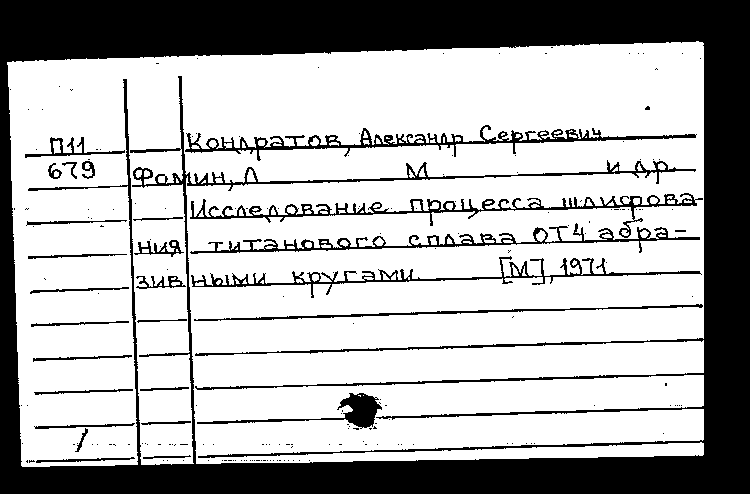 П11 Кондратов, Александр Сергеевич
679 Фомин, Л М и др.
Исследование процесса шлифова-
ния титанового сплава ОТ4 абра-
зивными кругами [М], 1971
/